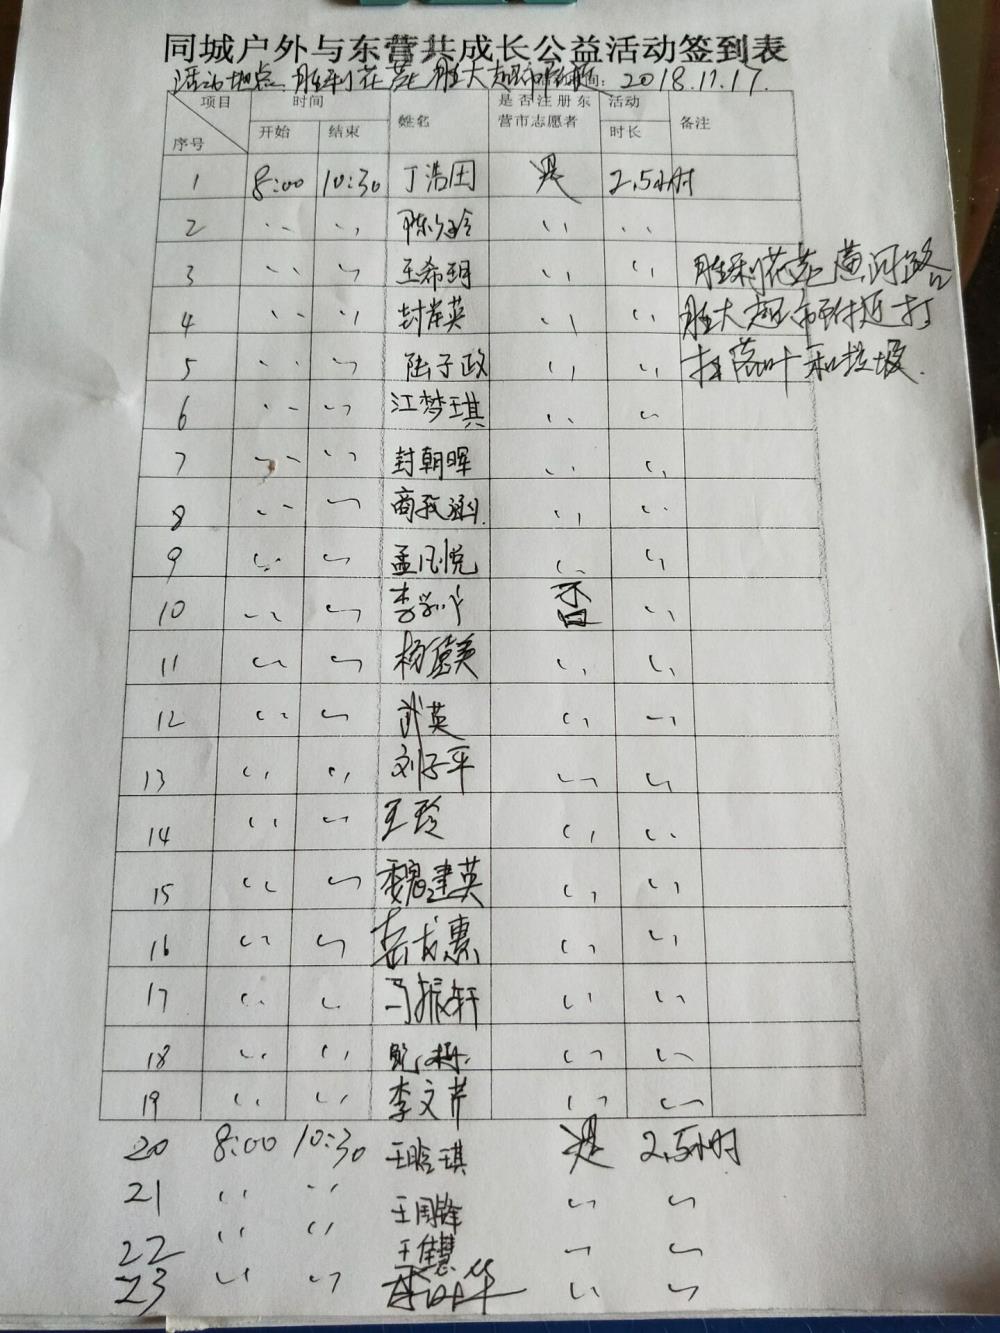 同城户外与东营共成长公益活动签到表
活动地点 胜利花苑 胜大超市附近 时间: 2018.11.17.
项目 时间 姓名 是否注册东营市志愿者 活动时长 备注
序号 开始 结束
1 8:00 10:30 丁浩田 是 2.5小时
2 〃 〃 陈 玲 〃 〃
3 〃 〃 王希玥 〃 〃 胜利花苑黄河路口
4 〃 〃 封岸英 〃 〃 胜大超市附近打
5 〃 〃 陆子政 〃 〃 扫落叶和垃圾.
6 〃 〃 江梦琪 〃 〃
7 〃 〃 封朝晖 〃 〃
8 〃 〃 商孜涵 〃 〃
9 〃 〃 孟凡悦 〃 〃
10 〃 〃 李 否 〃
11 〃 〃 杨 英 〃 〃
12 〃 〃 武英 〃 〃
13 〃 〃 刘子平 〃 〃
14 〃 〃 王玲 〃 〃
15 〃 〃 魏建英 〃 〃
16 〃 〃 惠 〃 〃
17 〃 〃 马振轩 〃 〃
18 〃 〃 〃 〃
19 〃 〃 李文芹 〃 〃
20 8:00 10:30 王晗琪 是 2.5小时
21 〃 〃 王周锋 〃 〃
22 〃 〃 王佳慧 〃 〃
23 〃 〃 〃 〃